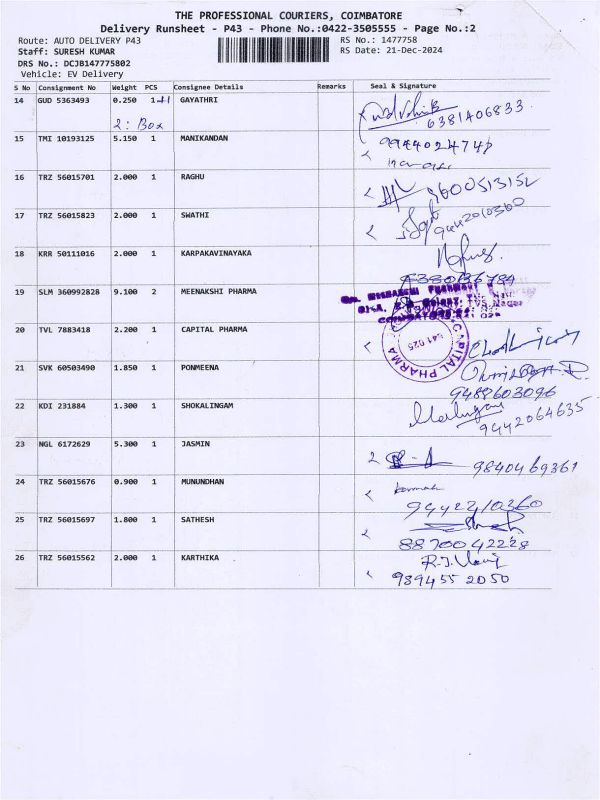 THE PROFESSIONAL COURIERS, COIMBATORE
Delivery Runsheet - P43 - Phone No.:0422-3505555 - Page No.:2
Route: AUTO DELIVERY P43 RS No.: 1477758
Staff: SURESH KUMAR RS Date: 21-Dec-2024
DRS No.: DCJB147775802
Vehicle: EV Delivery
S No Consignment No Weight PCS Consignee Details Remarks Seal & Signature
14 GUD 5363493 0.250 1+1 GAYATHRI
2: Box 6381406833
15 TMI 10193125 5.150 1 MANIKANDAN
16 TRZ 56015701 2.000 1 RAGHU
17 TRZ 56015823 2.000 1 SWATHI 9442010360
18 KRR 50111016 2.000 1 KARPAKAVINAYAKA
19 SLM 360992828 9.100 2 MEENAKSHI PHARMA
20 TVL 7883418 2.200 1 CAPITAL PHARMA
CAPITAL PHARMA
641 025
21 SVK 60503490 1.850 1 PONMEENA
9488603096
22 KDI 231884 1.300 1 SHOKALINGAM
9442064635
23 NGL 6172629 5.300 1 JASMIN
9840469361
24 TRZ 56015676 0.900 1 MUNUNDHAN
9442210360
25 TRZ 56015697 1.800 1 SATHESH
8870042228
26 TRZ 56015562 2.000 1 KARTHIKA
9894552050